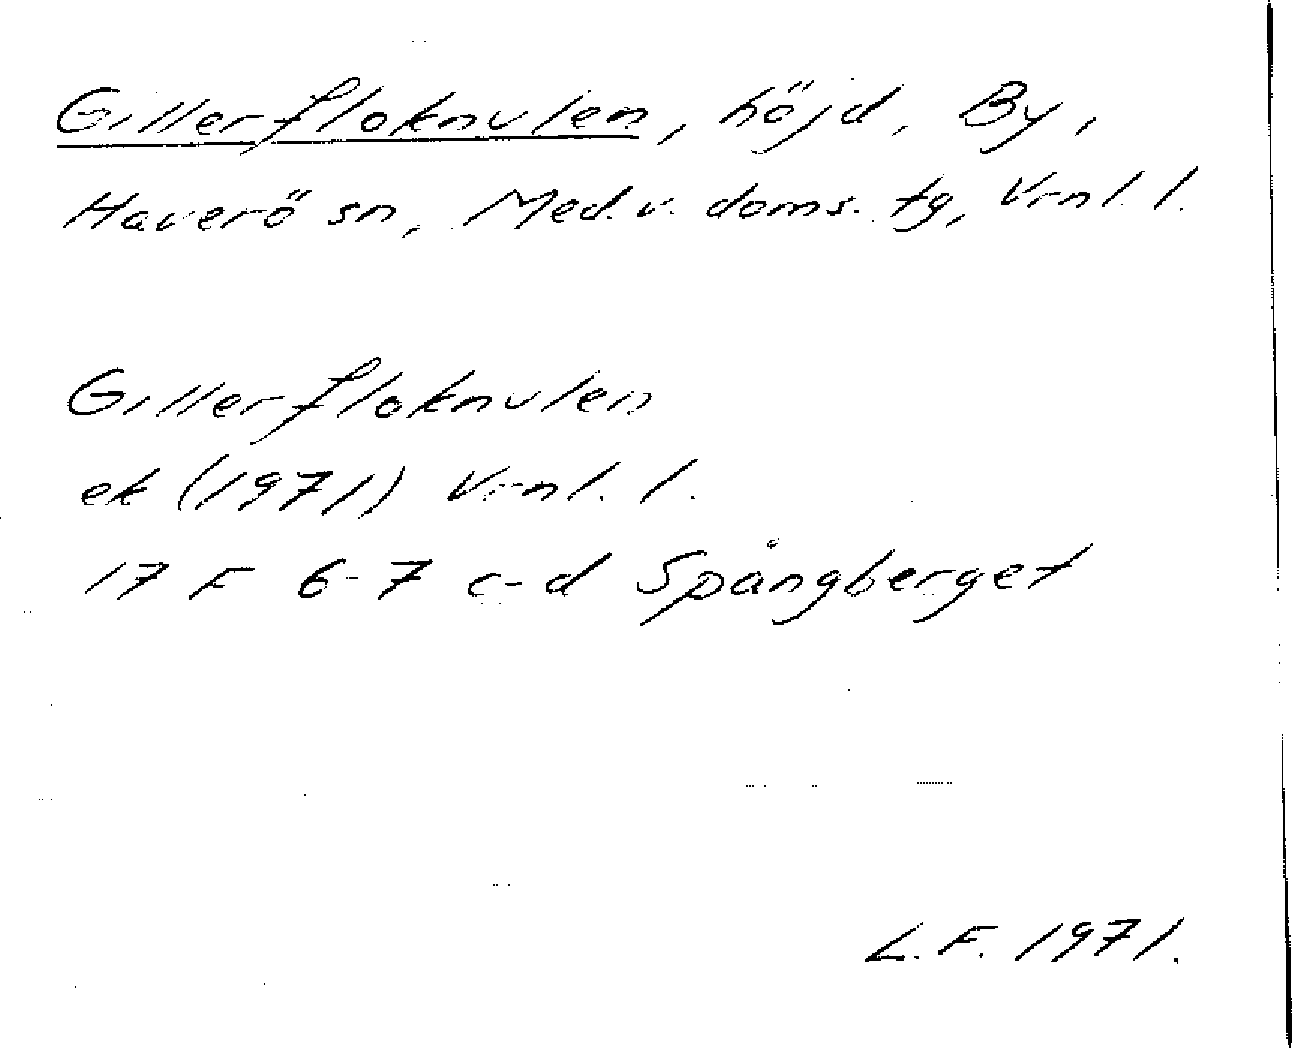 Gillerfloknulen, höjd, By,
Haverö sn, Med.v. doms. tg, Vrnl. l.
Gillerfloknulen
ek (1971) Vrnl. l.
17 F 6-7 c-d Spångberget
L.F. 1971.